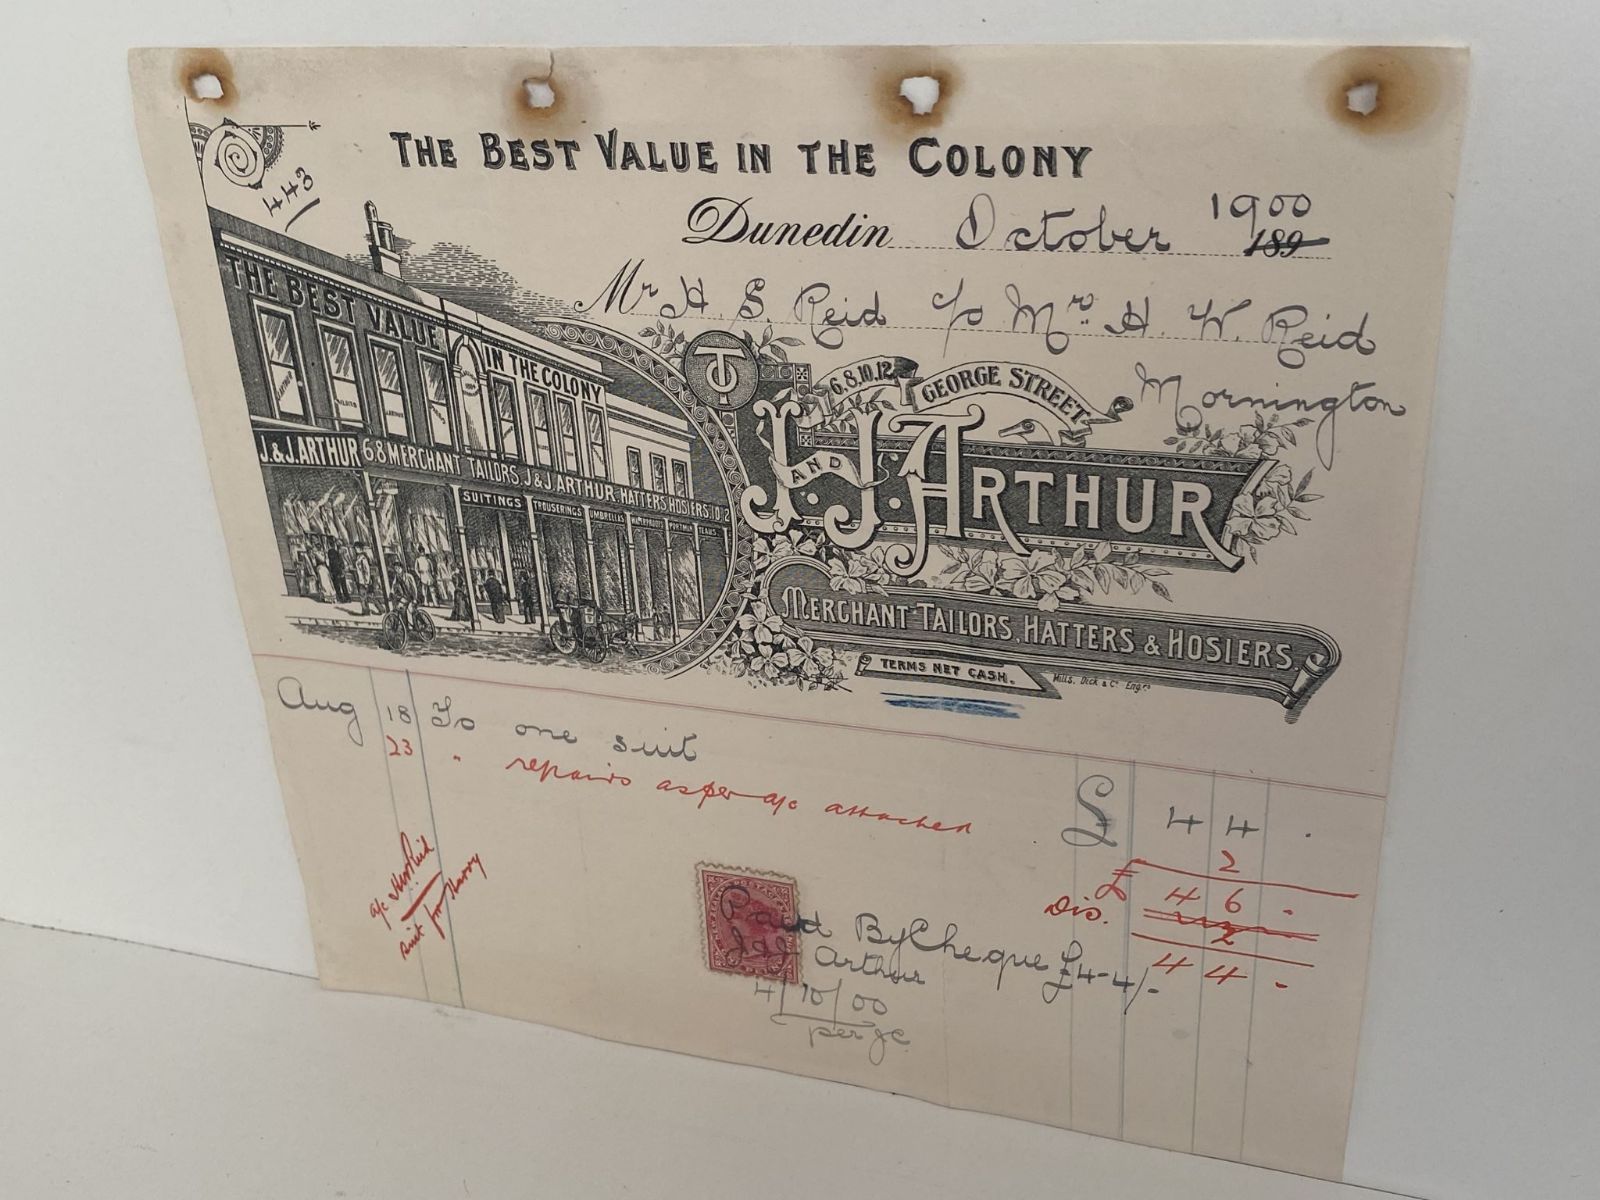 443
THE BEST VALUE IN THE COLONY
Dunedin October 1900
189
Mr H. S. Reid c/o Mrs H. W. Reid
Mornington
THE BEST VALUE IN THE COLONY
J. & J. ARTHUR 6 8 MERCHANT TAILORS, J & J ARTHUR, HATTERS, HOSIERS, 10 12
SUITINGS TROUSERINGS UMBRELLAS
6. 8. 10. 12. GEORGE STREET
J. AND J. ARTHUR
MERCHANT TAILORS, HATTERS & HOSIERS.
TERMS NET CASH.
Mills, Dick & Co. Engrs
Aug 18 To one suit £ 4 4 .
23 " repairs as per a/c attached 2
£ 4 6 .
Dis. 2
4 4 -
suit for Harry
Paid By Cheque £4-4/-
J & J Arthur
4/10/00
per